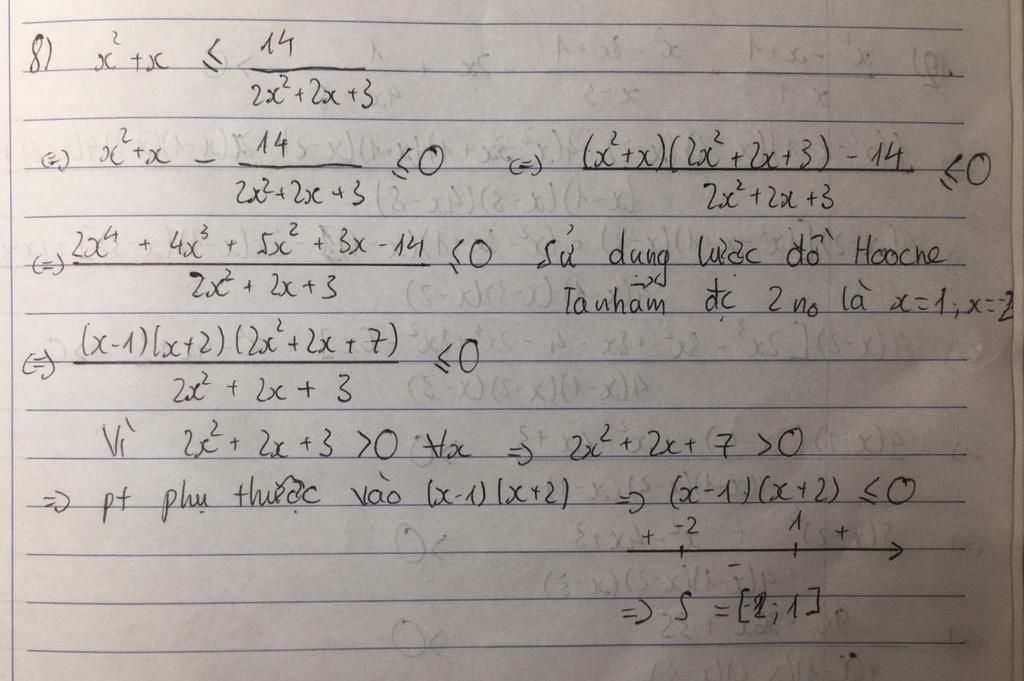 8) x² + x ≤ 14 / (2x² + 2x + 3)
(=) x² + x - 14 / (2x² + 2x + 3) ≤ 0 (=) ((x² + x)(2x² + 2x + 3) - 14) / (2x² + 2x + 3) ≤ 0
(=) (2x⁴ + 4x³ + 5x² + 3x - 14) / (2x² + 2x + 3) ≤ 0 Sử dụng lược đồ Hoocne
Ta nhẩm đc 2 no là x=1; x=-2
(=) ((x-1)(x+2)(2x² + 2x + 7)) / (2x² + 2x + 3) ≤ 0
Vì 2x² + 2x + 3 > 0 ∀x => 2x² + 2x + 7 > 0
=> pt phụ thuộc vào (x-1)(x+2) => (x-1)(x+2) ≤ 0
+ -2 - 1 +
=> S = [-2; 1]